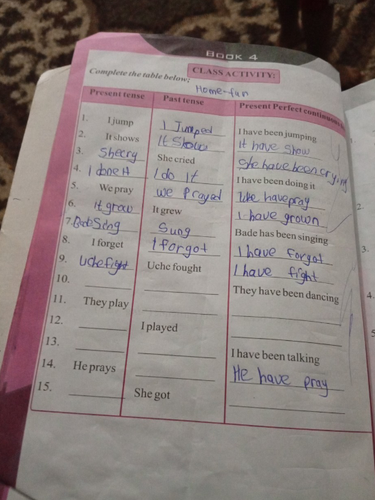 BOOK 4
CLASS ACTIVITY:
Complete the table below:
Home-fun
Present tense Past tense Present Perfect continuous
1. I jump I Jumped I have been jumping
2. It shows It Show It have show
3. She cry She cried She have been crying
4. I done it I do it I have been doing it
5. We pray we prayed We have pray
6. it grow It grew I have grown
7. Sing Sung Bade has been singing
8. I forget I forgot I have forgot
9. Uche fight Uche fought I have fight
10. They have been dancing
11. They play
12. I played
13. I have been talking
14. He prays He have pray
15. She got
2.
3.
4.
5